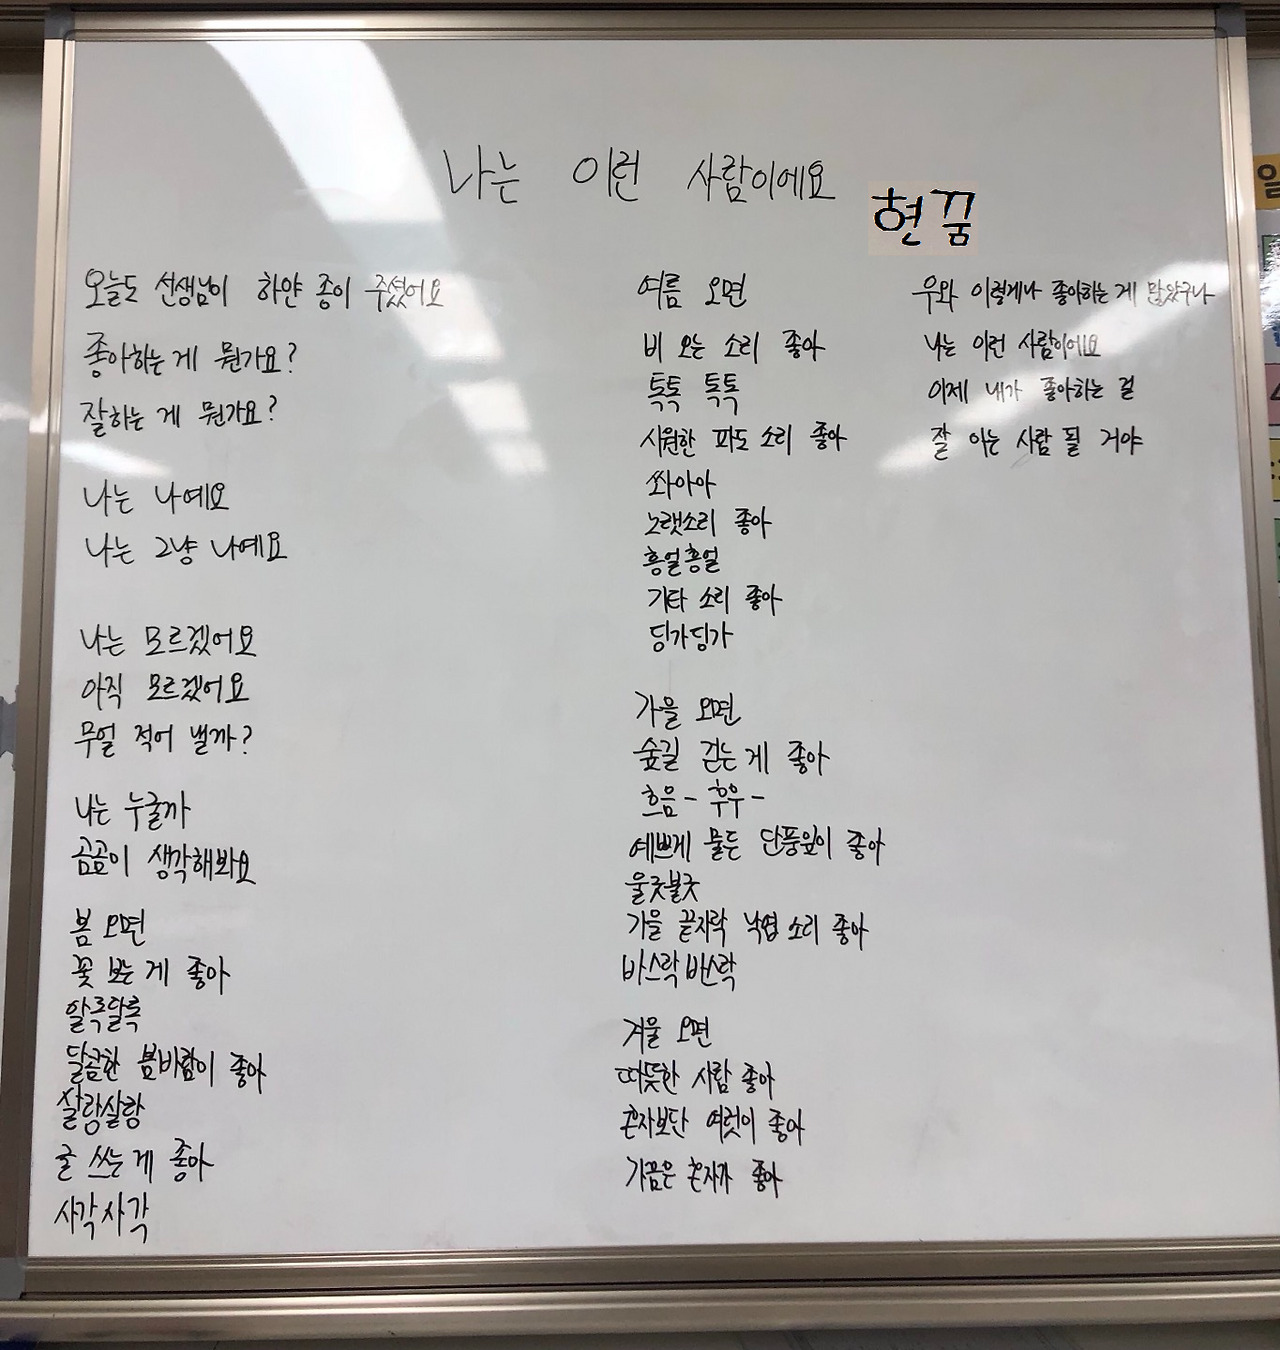 나는 이런 사람이에요
현꿈
오늘도 선생님이 하얀 종이 주셨어요
좋아하는 게 뭔가요?
잘하는 게 뭔가요?
나는 나예요
나는 그냥 나예요
나는 모르겠어요
아직 모르겠어요
무얼 적어 낼까?
나는 누굴까
곰곰이 생각해봐요
봄 오면
꽃 보는 게 좋아
알록달록
달콤한 봄바람이 좋아
살랑살랑
글 쓰는 게 좋아
사각사각
여름 오면
비 오는 소리 좋아
톡톡 톡톡
시원한 파도 소리 좋아
쏴아아
노랫소리 좋아
흥얼흥얼
기타 소리 좋아
딩가딩가
가을 오면
숲길 걷는 게 좋아
흐음- 후우-
예쁘게 물든 단풍잎이 좋아
울긋불긋
가을 끝자락 낙엽 소리 좋아
바스락바스락
겨울 오면
따뜻한 사람 좋아
혼자보단 여럿이 좋아
가끔은 혼자가 좋아
우와 이렇게나 좋아하는 게 많았구나
나는 이런 사람이에요
이제 내가 좋아하는 걸
잘 아는 사람 될 거야